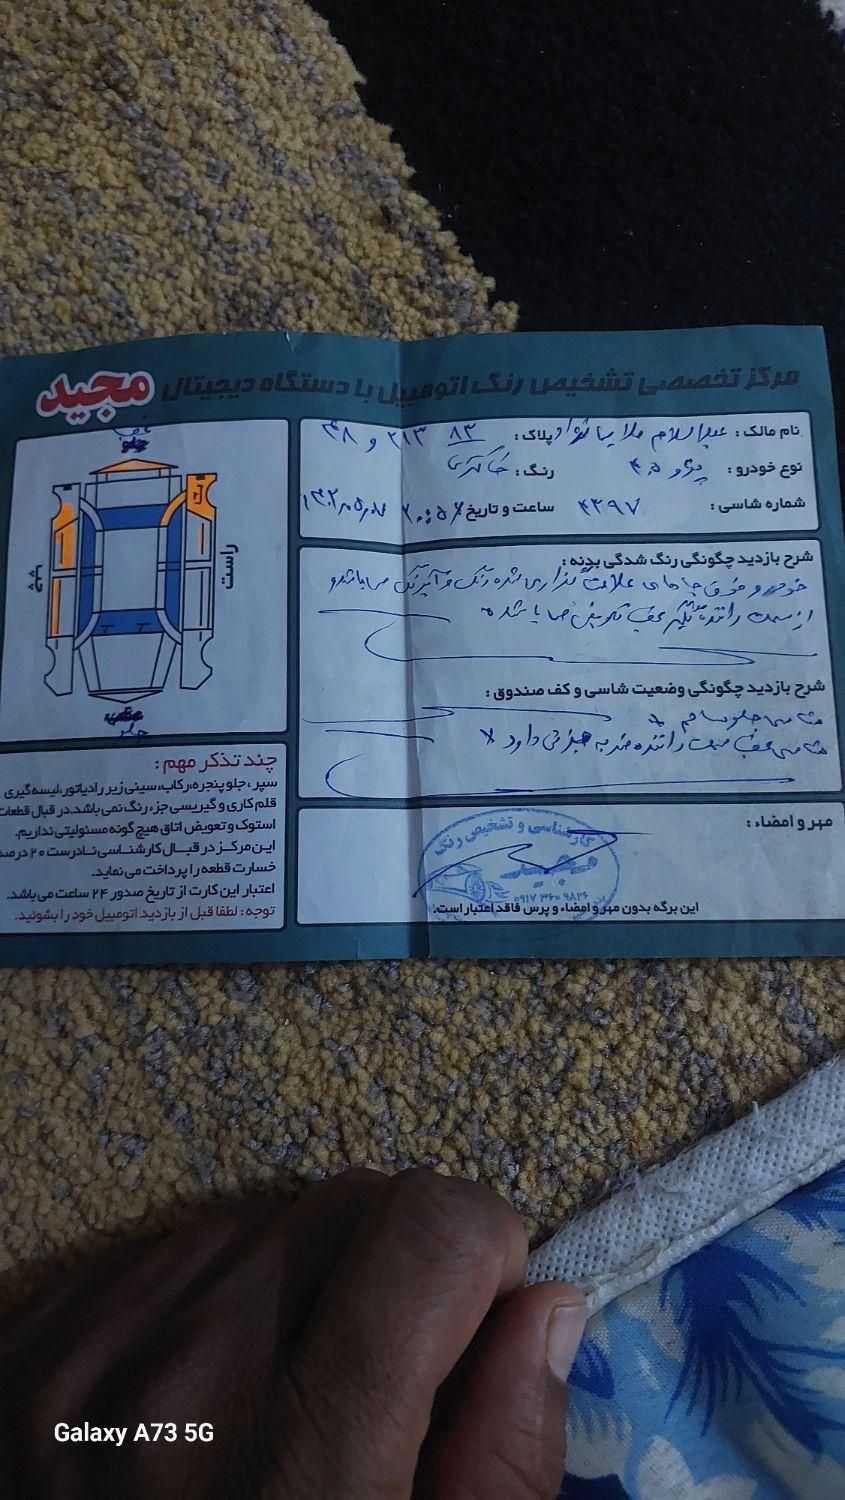 مرکز تخصصی تشخیص رنگ اتومبیل با دستگاه دیجیتال مجید
نام مالک : عبدالسلام ملایی پلاک : ۸۳ ۲۱۳ و ۴۸
نوع خودرو : پژو ۴۰۵ رنگ : خاکستری
شماره شاسی : ۴۳۹۷ ساعت و تاریخ
شرح بازدید چگونگی رنگ شدگی بدنه :
خودرو فوق جاهای علامت گذاری شده رنگ و آبرنگ می باشد و
از سمت راننده گلگیر عقب تعویض می باشد
شرح بازدید چگونگی وضعیت شاسی و کف صندوق :
شاسی جلو سالم
شاسی عقب سمت راننده ضربه جزئی دارد
مهر و امضاء :
کارشناسی و تشخیص رنگ
مجید
۰۹۱۷ ۳۶۰ ۹۸۲۶
این برگه بدون مهر و امضاء و پرس فاقد اعتبار است.
عقب
جلو
راست
چپ
عقب
جلو
چند تذکر مهم :
سپر ، جلو پنجره، رکاب، سینی زیر رادیاتور، لیسه گیری
قلم کاری و گیریسی جزء رنگ نمی باشد. در قبال قطعات
استوک و تعویض اتاق هیچ گونه مسئولیتی نداریم.
این مرکز در قبال کارشناسی نادرست ۲۰ درصد
خسارت قطعه را پرداخت می نماید.
اعتبار این کارت از تاریخ صدور ۲۴ ساعت می باشد.
توجه : لطفا قبل از بازدید اتومبیل خود را بشوئید.
Galaxy A73 5G